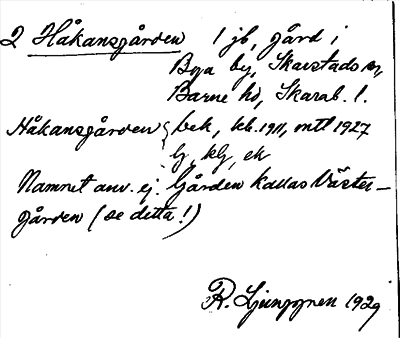 2 Håkansgården 1 jb, gård i
Boja by, Skarstads sn,
Barne hd, Skarab. l.
Håkansgården { bek, kb. 1911, mtl 1927
lj, klj, ek
Namnet anv. ej. Gården kallas Väster-
gården (se detta!)
R. Ljunggren 1929